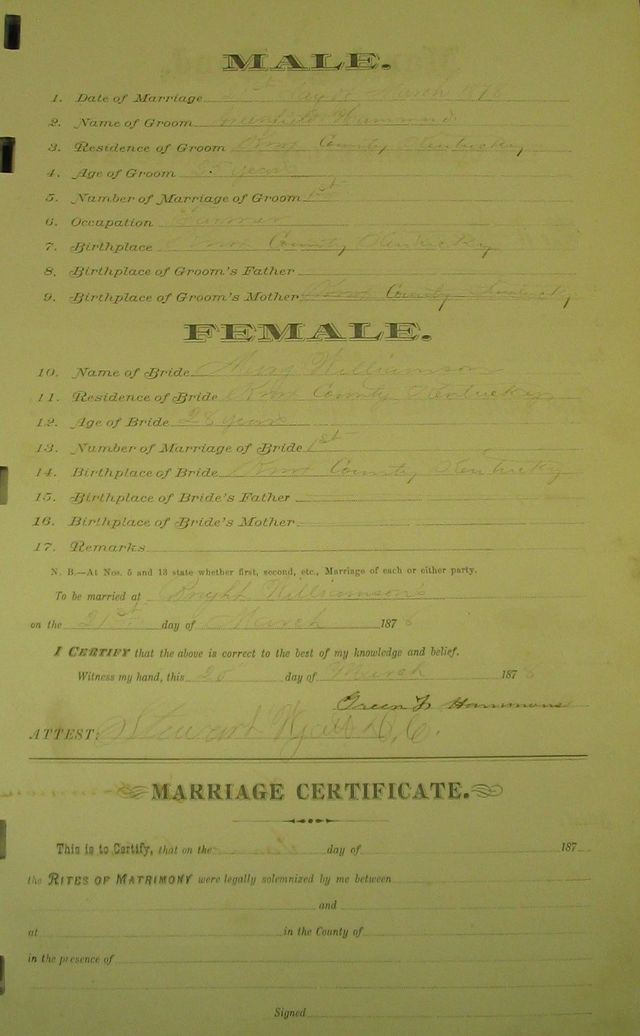 MALE.
1. Date of Marriage 21st day of March 1878
2. Name of Groom Greenfield Hammond
3. Residence of Groom Knox County Kentucky
4. Age of Groom years
5. Number of Marriage of Groom 1st
6. Occapation Farmer
7. Birthplace Knox County Kentucky
8. Birthplace of Groom's Father
9. Birthplace of Groom's Mother Knox County Kentucky
FEMALE.
10. Name of Bride Williamson
11. Residence of Bride Knox County Kentucky
12. Age of Bride 28 years
13. Number of Marriage of Bride 1st
14. Birthplace of Bride Knox County Kentucky
15. Birthplace of Bride's Father
16. Birthplace of Bride's Mother
17. Remarks
N. B.—At Nos. 5 and 13 state whether first, second, etc., Marriage of each or either party.
To be married at Williamson's
on the 21st day of March 1878
I CERTIFY that the above is correct to the best of my knowledge and belief.
Witness my hand, this 20 day of March 1878
Green F Hammons
ATTEST: Stewart D.C.
MARRIAGE CERTIFICATE.
This is to Certify, that on the day of 187
the RITES OF MATRIMONY were legally solemnized by me between
and
at in the County of
in the presence of
Signed